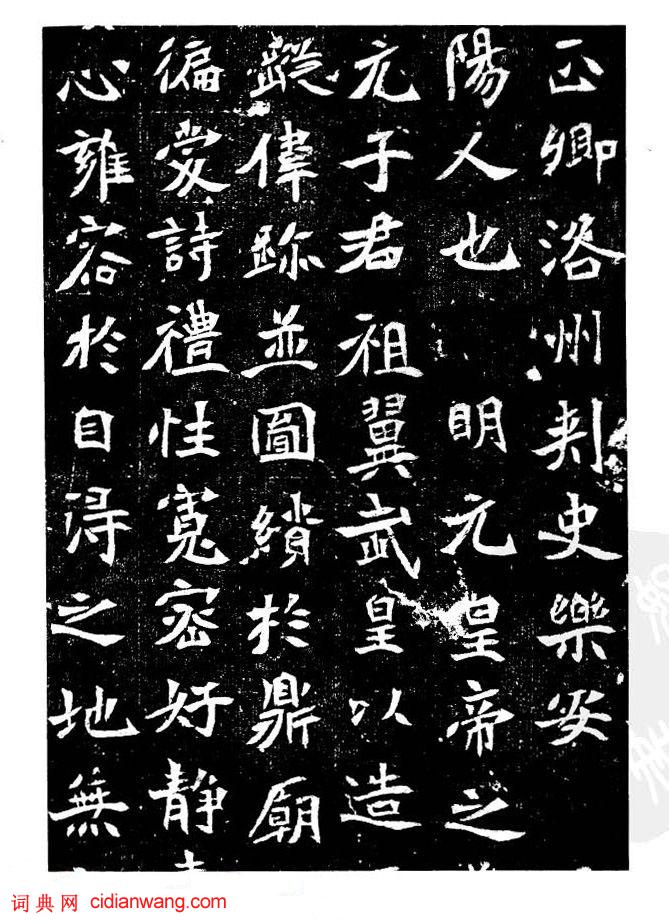 正卿洛州刺史樂安
陽人也 明元皇帝之
元子君祖翼武皇以造
蹤偉跡並圖繢於鼎廟
徧愛詩禮性寬密好靜
心雍容於自得之地無
词典网 cidianwang.com